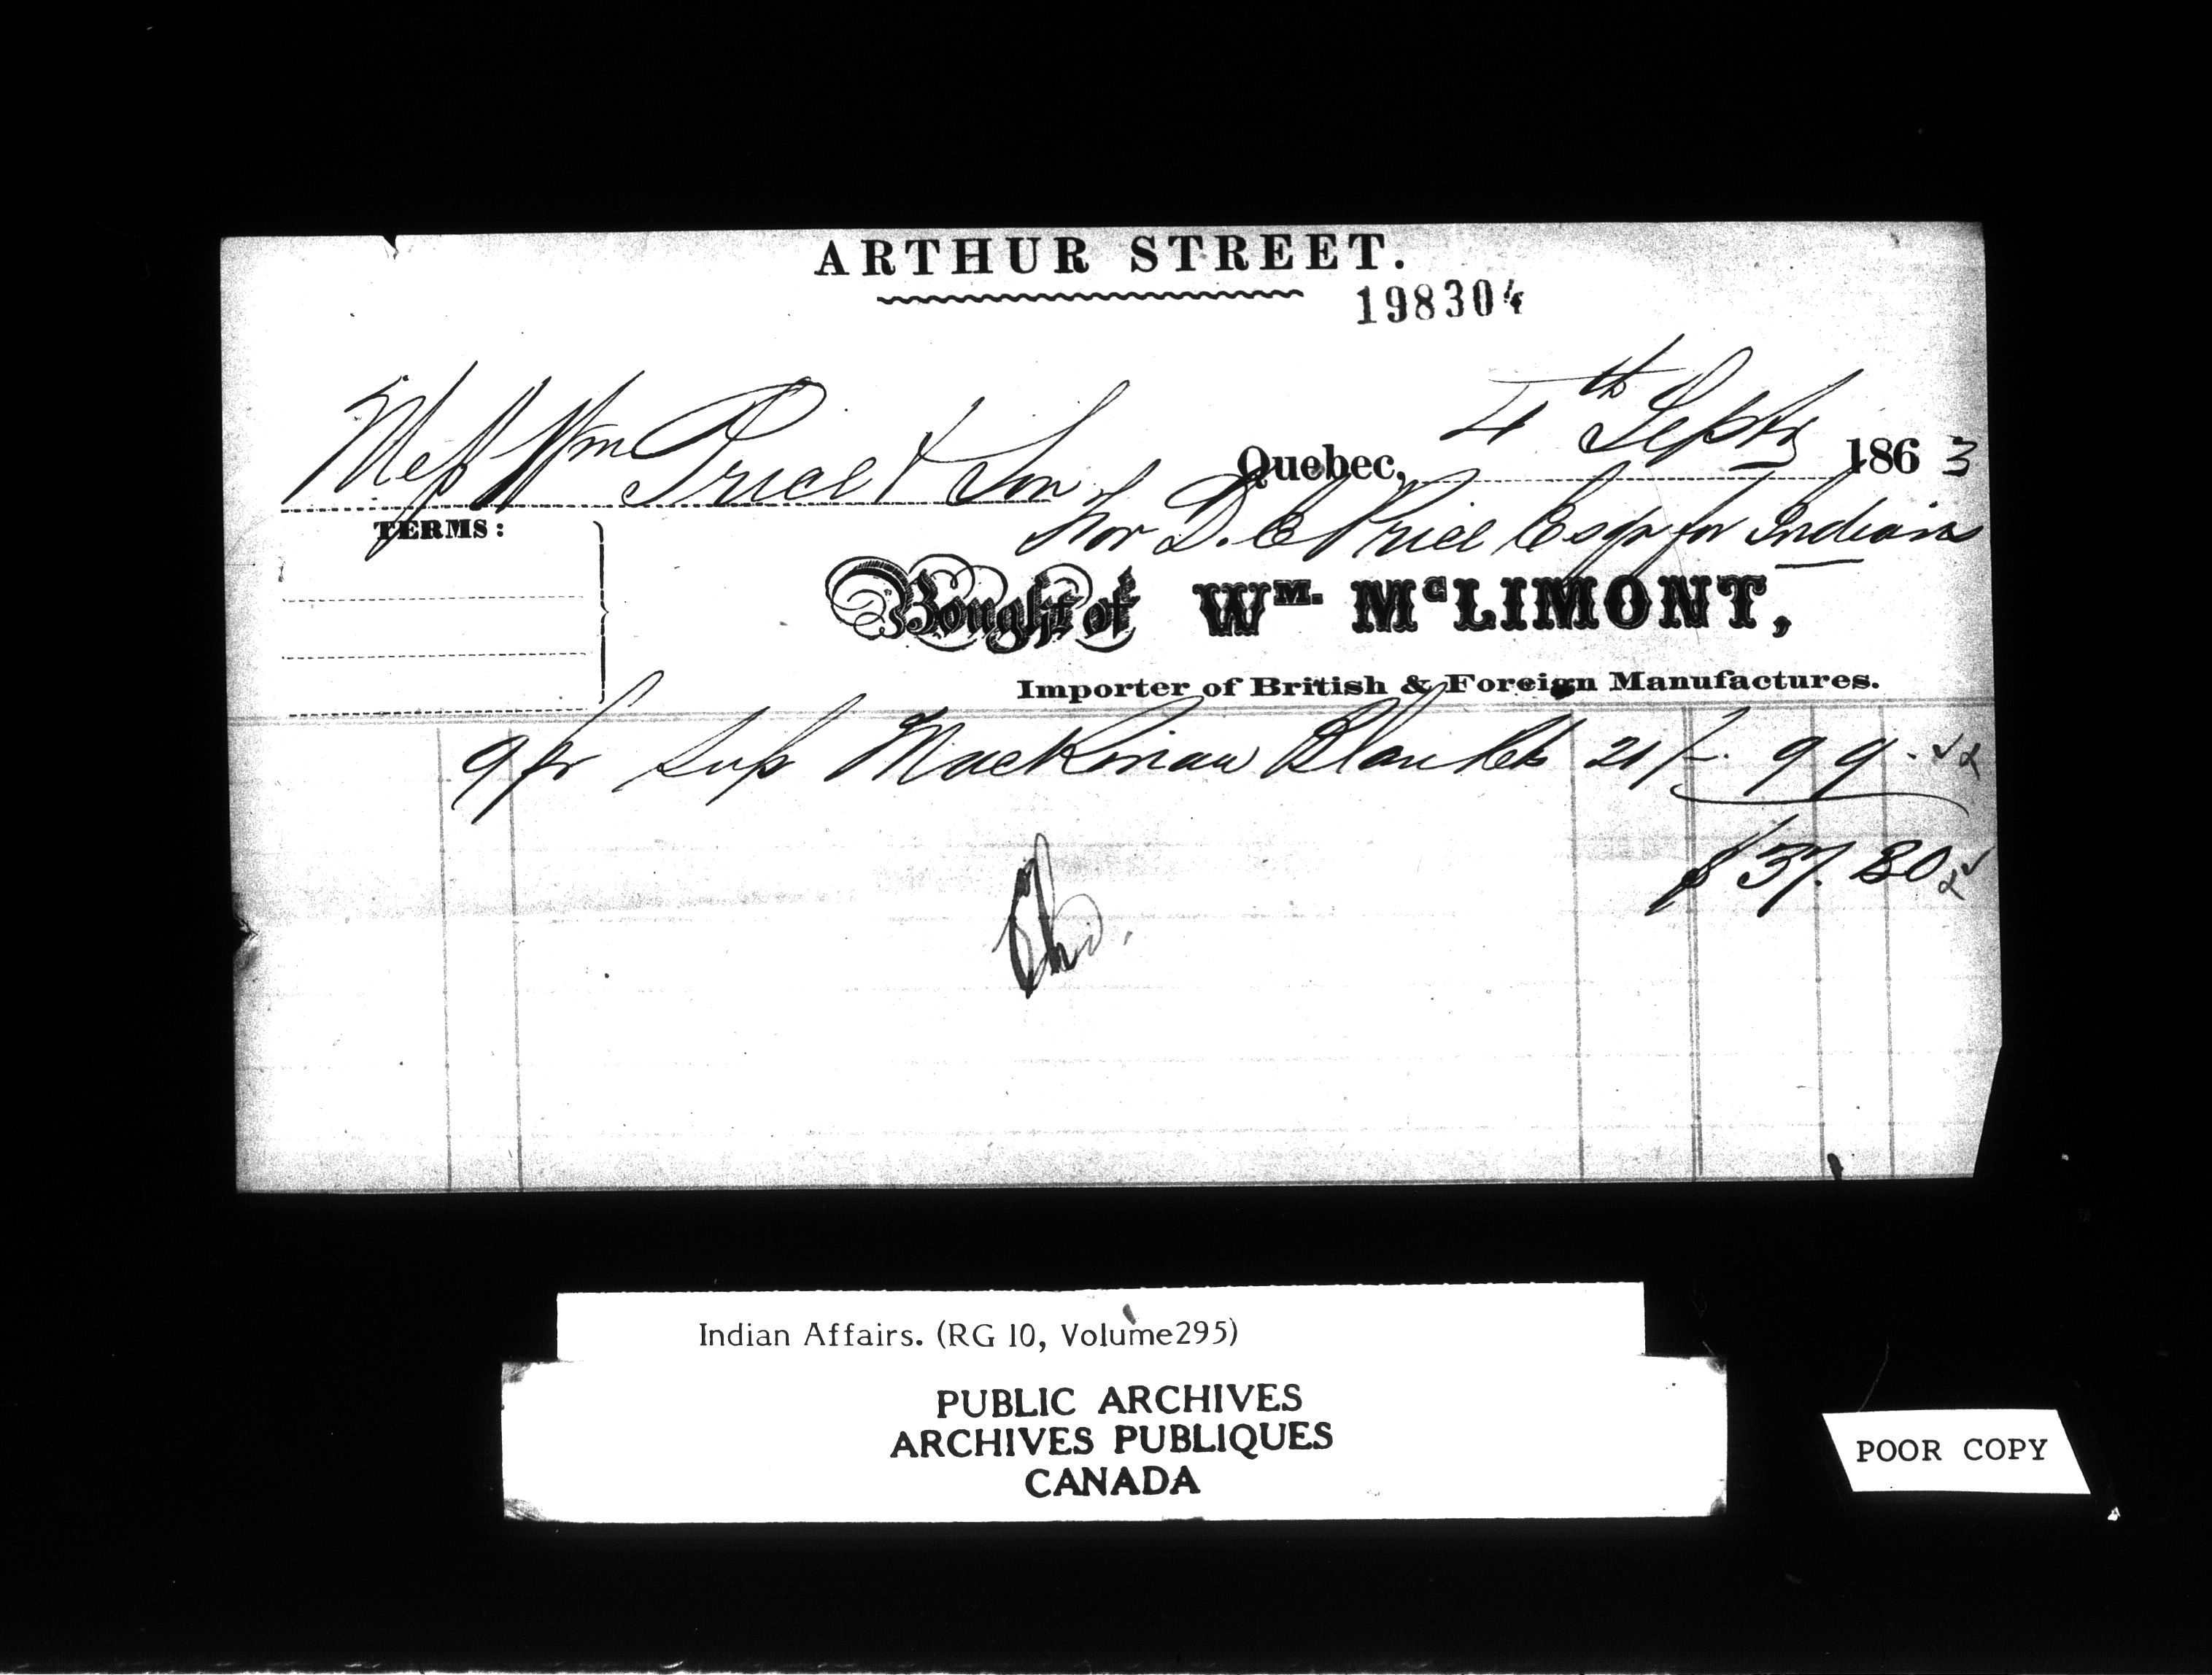 ARTHUR STREET.
198304
Quebec, 4th Septr 1863
Mess Wm Price & Son
For D. E Price Esqr for Indians
TERMS:
Bought of WM. McLIMONT,
Importer of British & Foreign Manufactures.
9 pr Sup Mackinaw Blankets 21/- 9 9 -
$ 37. 80
Indian Affairs. (RG 10, Volume295)
PUBLIC ARCHIVES
ARCHIVES PUBLIQUES
CANADA
POOR COPY